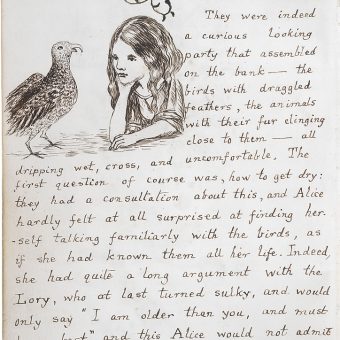 They were indeed
a curious looking
party that assembled
on the bank — the
birds with draggled
feathers, the animals
with their fur clinging
close to them — all
dripping wet, cross, and uncomfortable. The
first question of course was, how to get dry:
they had a consultation about this, and Alice
hardly felt at all surprised at finding her-
-self talking familiarly with the birds, as
if she had known them all her life. Indeed,
she had quite a long argument with the
Lory, who at last turned sulky, and would
only say "I am older than you, and must
best" and this Alice would not admit